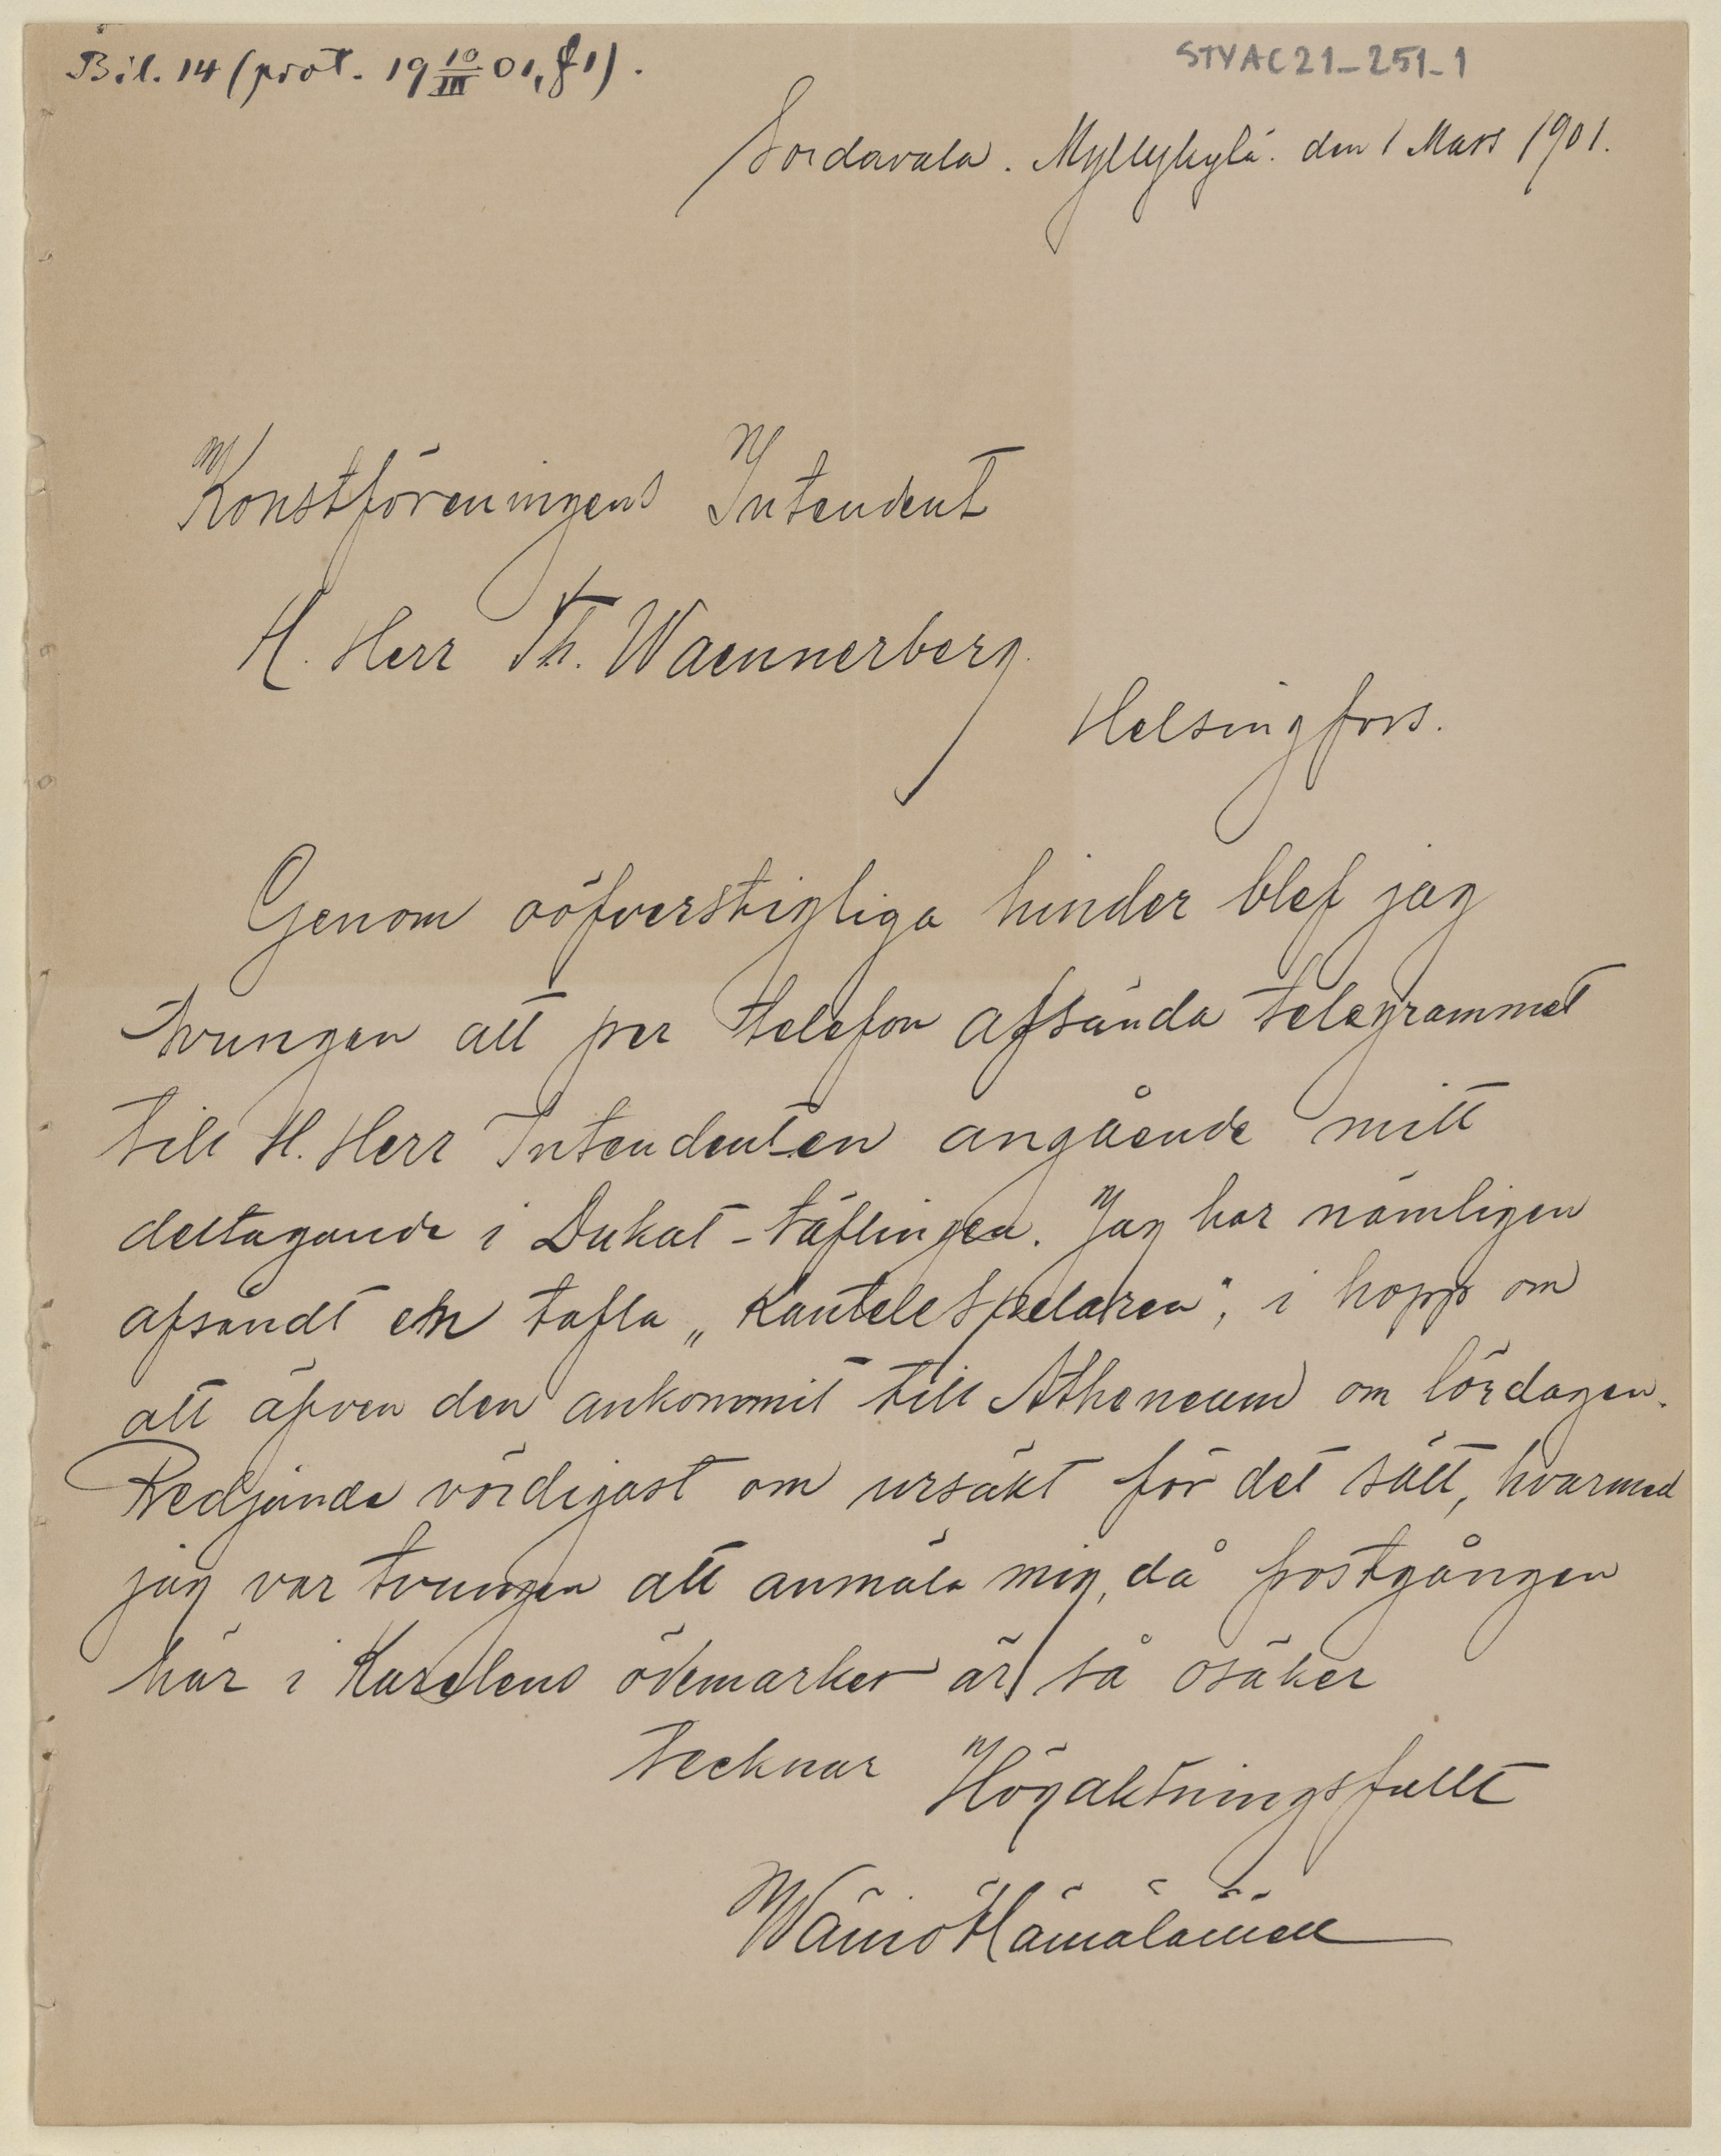 Bil. 14 (prot. 19 10/III 01, § 1).
STYAC21_251_1
Sordavala. Myllykylä. den 1 Mars 1901.
Konstföreningens Intendent
H. Herr Th. Waennerberg.
Helsingfors.
Genom oöfverstigliga hinder blef jag
tvungen att per telefon afsända telegrammet
till H. Herr Intendenten angående mitt
deltagande i Dukat-täflingen. Jag har nämligen
afsändt en tafla „Kantelespelaren", i hopp om
att äfven den ankommit till Atheneum om lördagen.
Bedjande vördigast om ursäkt för det sätt, hvarmed
jag var tvungen att anmäla mig, då postgången
här i Karelens ödemarker är så osäker
tecknar Högaktningsfullt
Wäinö Hämäläinen